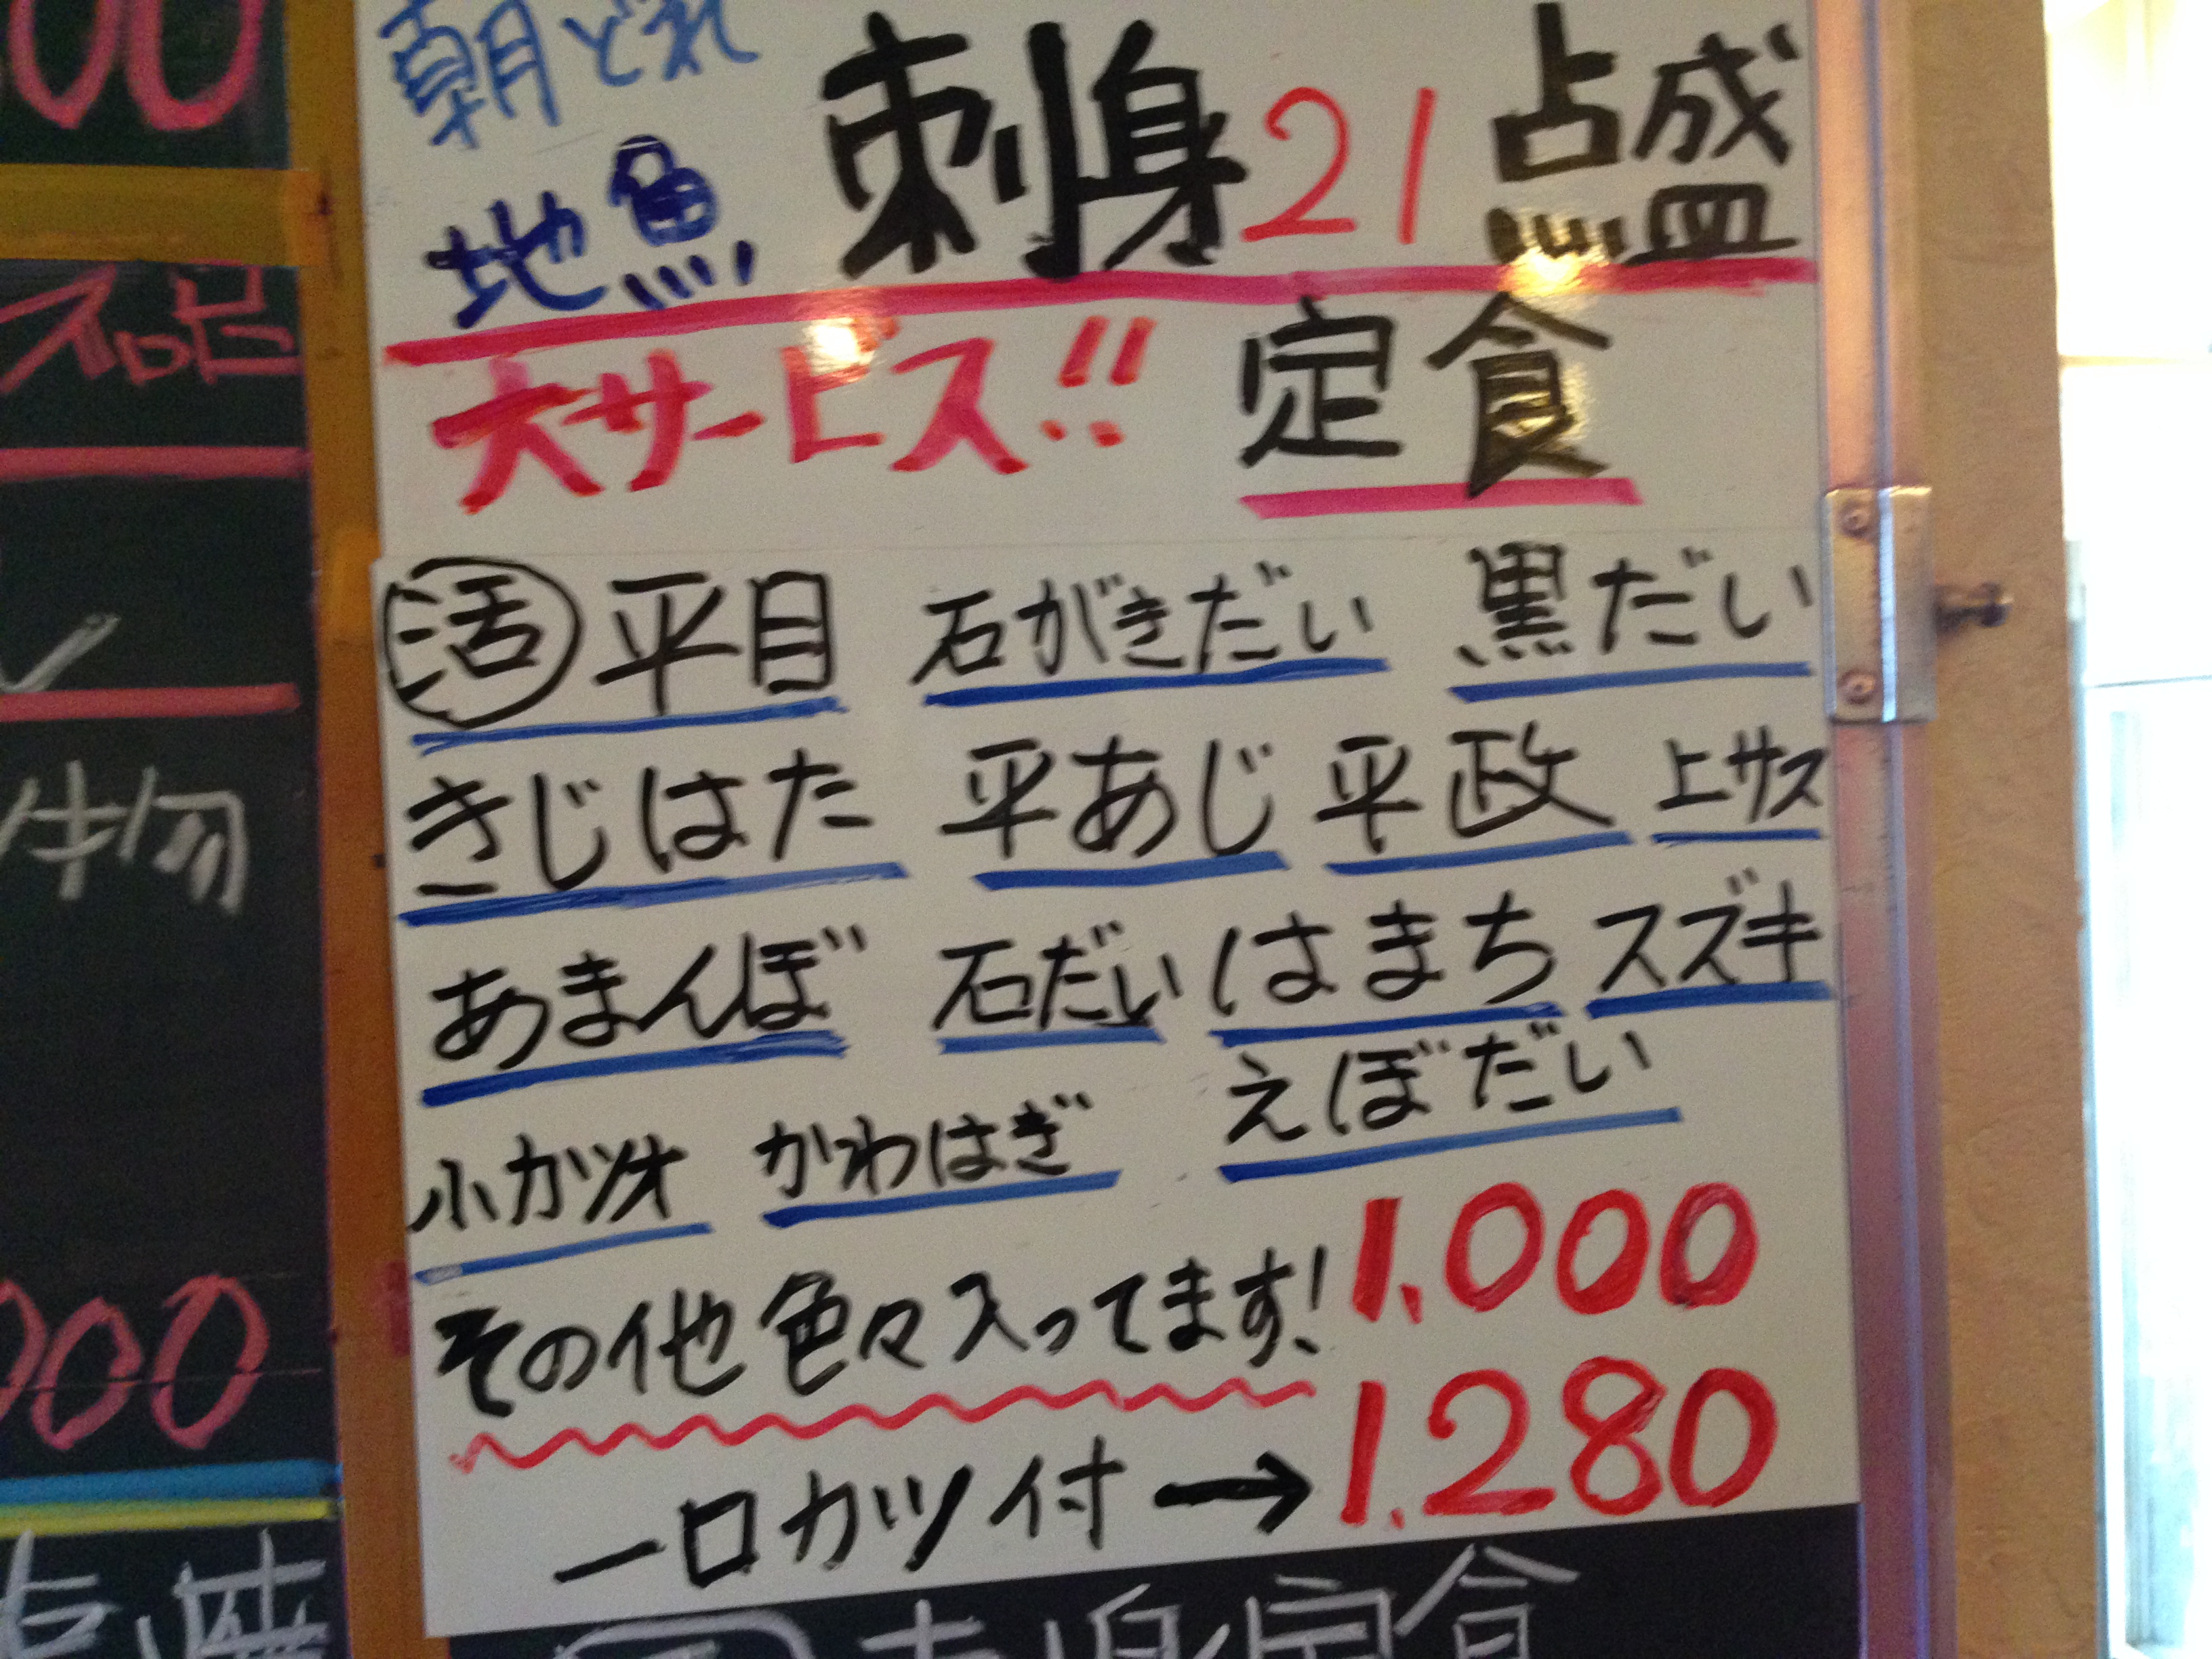 朝どれ
地魚 刺身21点盛
大サービス!! 定食
活 平目 石がきだい 黒だい
きじはた 平あじ 平政 上サス
あまんぼ 石だい はまち スズキ
小カツオ かわはぎ えぼだい
その他色々入ってます! 1.000
一口カツ付→1.280
000